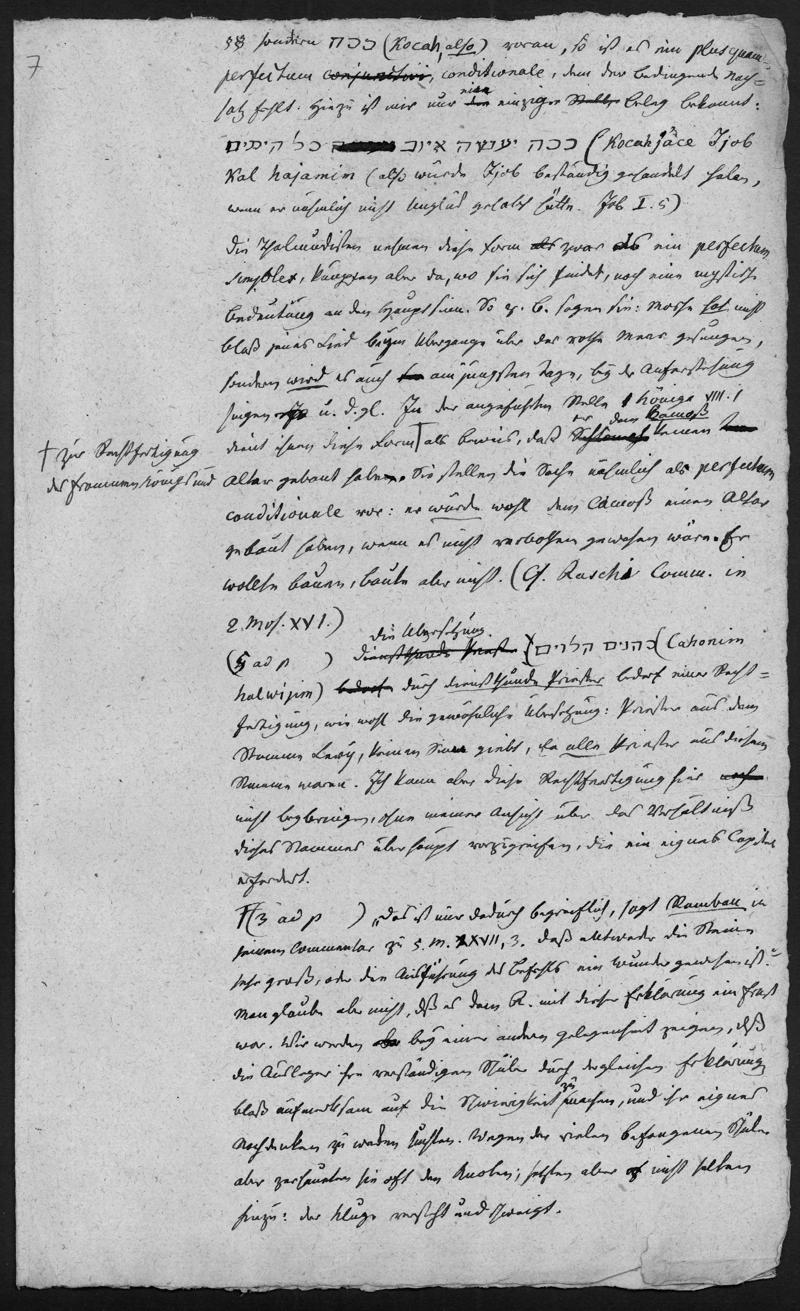 7
sondern ככה (Kocah, also) voran, so ist es ein plusquam-
perfectum conjunctivi, conditionale, dem der bedingende Nach-
satz fehlt. Hiezu ist mir nur ein einziger Beleg bekannt:
ככה יעשה איוב כל הימים (Kocah jáce Ijob
Kal hajamim (also würde Ijob beständig gehandelt haben,
wenn er nähmlich nicht Unglück gehabt hätte. Job I. 5)
Die Thalmudisten nehmen diese Form zwar als ein perfectum
simplex, knüpfen aber da, wo sie sich findet, noch eine mystische
Bedeutung an den Hauptsinn. So z. b. sagen sie: Mosche hat nicht
bloß jenes Lied beym Übergange über das rothe Meer gesungen,
sondern wird es auch am jüngsten Tage, bey der Auferstehung
singen u. d. gl. In der angeführten Stelle 1 Könige VIII. 1
dient ihnen diese Form † als Beweis, daß er dem Kamoß keinen
† zur Rechtfertigung
des frommen Königs und
Altar gebaut habe. Sie stellen die Sache nähmlich als perfectum
conditionale vor: er würde wohl dem Camoß einen Altar
gebaut haben, wenn es nicht verbothen gewesen wäre. Er
wollte bauen, baute aber nicht. (Cf. Raschi Comm. in
2. Mos. XVI.)
(§ ad p ) die Übersetzung כהנים הלוים (Cahonim
halwijim) durch diensthuende Priester bedarf einer Recht-
fertigung, wie wohl die gewöhnliche Übersetzung: Priester aus dem
Stamme Levy, keinen Sinn giebt, da alle Priester aus diesem
Stamme waren. Ich kann aber diese Rechtfertigung hier
nicht beybringen, ohne meiner Ansicht über das Verhältniß
dieses Stammes überhaupt vorzugreifen, die ein eignes Capitel
erfordert.
(3 ad p ) „Das ist nur dadurch begreiflich, sagt Ramban in
seinem Commentar zu 5. M. XXVII, 3. daß entweder die Steine
sehr groß, oder die Ausführung des Befehls ein Wunder gewesen ist."
Man glaube aber nicht, daß es dem R. mit dieser Erklärung ein Ernst
war. Wir werden bey einer andern Gelegenheit zeigen, daß
die Ausleger ihre verständigen Schüler durch dergleichen Erklärung
bloß aufmerksam auf die Schwierigkeit zu machen, und ihr eignes
Nachdenken zu wecken suchten. Wegen der vielen befangenen Schüler
aber zerhauten sie oft den Knoten; setzten aber nicht selten
hinzu: der Kluge versteht und schweigt.